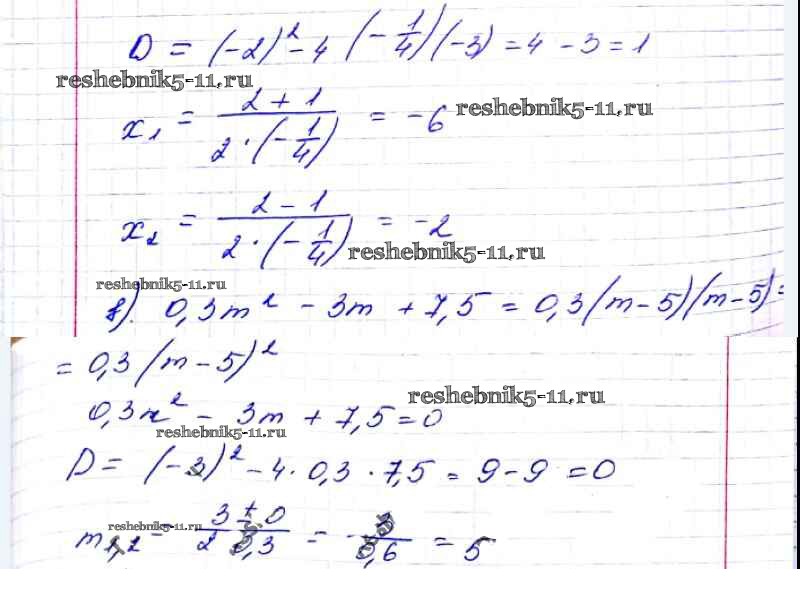 D = (-2)² - 4 (-1/4)(-3) = 4 - 3 = 1
reshebnik5-11.ru
x₁ = (2 + 1)/(2 · (-1/4)) = -6 reshebnik5-11.ru
x₂ = (2 - 1)/(2 · (-1/4)) = -2
reshebnik5-11.ru
reshebnik5-11.ru
в). 0,3m² - 3m + 7,5 = 0,3(m - 5)(m - 5) =
= 0,3(m - 5)²
reshebnik5-11.ru
0,3x² - 3m + 7,5 = 0
reshebnik5-11.ru
D = (-3)² - 4 · 0,3 · 7,5 = 9 - 9 = 0
reshebnik5-11.ru
m₁,₂ = (3 ± 0)/(2 · 0,3) = 3/0,6 = 5